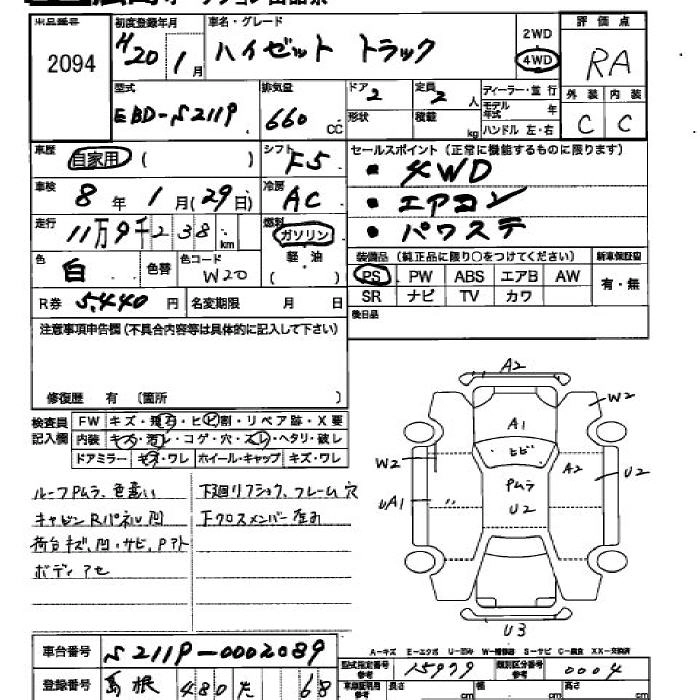 出品番号 2094
初度登録年月 H20 1月
車名・グレード ハイゼット トラック
2WD 4WD
評価点 RA
外装 内装
C C
型式 EBD-S211P
排気量 660 CC
ドア 2
形状
定員 2 人
積載 kg
ディーラー・並行
モデル年式 年
ハンドル 左・右
車歴 自家用 ( )
シフト F5
車検 8年 1月(29日)
冷房 AC
走行 11万9千238 km
燃料 ガソリン 軽・油 ( )
色 白 色替
色コード W20
R券 5,440 円
名変期限 月 日
セールスポイント (正常に機能するものに限ります)
・4WD
・エアコン
・パワステ
装備品 (純正品に限り○をつけてください)
新車保証書 有・無
PS PW ABS エアB AW
SR ナビ TV カワ
後日品
注意事項申告欄(不具合内容等は具体的に記入して下さい)
修復歴 有 〔箇所 〕
検査員記入欄
FW キズ・飛石・ヒビ割・リペア跡・X要
内装 キズ・汚レ・コゲ・穴・スレ・ヘタリ・破レ
ドアミラー キズ・ワレ ホイール・キャップ キズ・ワレ
ルーフPムラ、色違い
キャビンRパネル凹
荷台キズ、凹・サビ、Pアト
ボディアセ
下回リフショク、フレーム穴
Fクロスメンバー歪み
A2
W2
A1
ヒビ
W2
A2
U2
Pムラ
U2
UA1
U3
車台番号 S211P-0002089
登録番号 島根 480 た 68
A-キズ E-エクボ U-凹み W-補修跡 S-サビ C-腐食 XX-交換済
型式指定番号参考 15979
類別区分番号参考 0004
車庫証明用参考 長さ cm 幅 cm 高さ cm